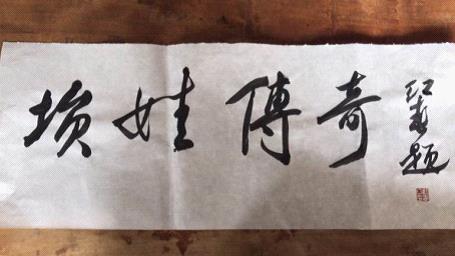 埙娃傳奇
题